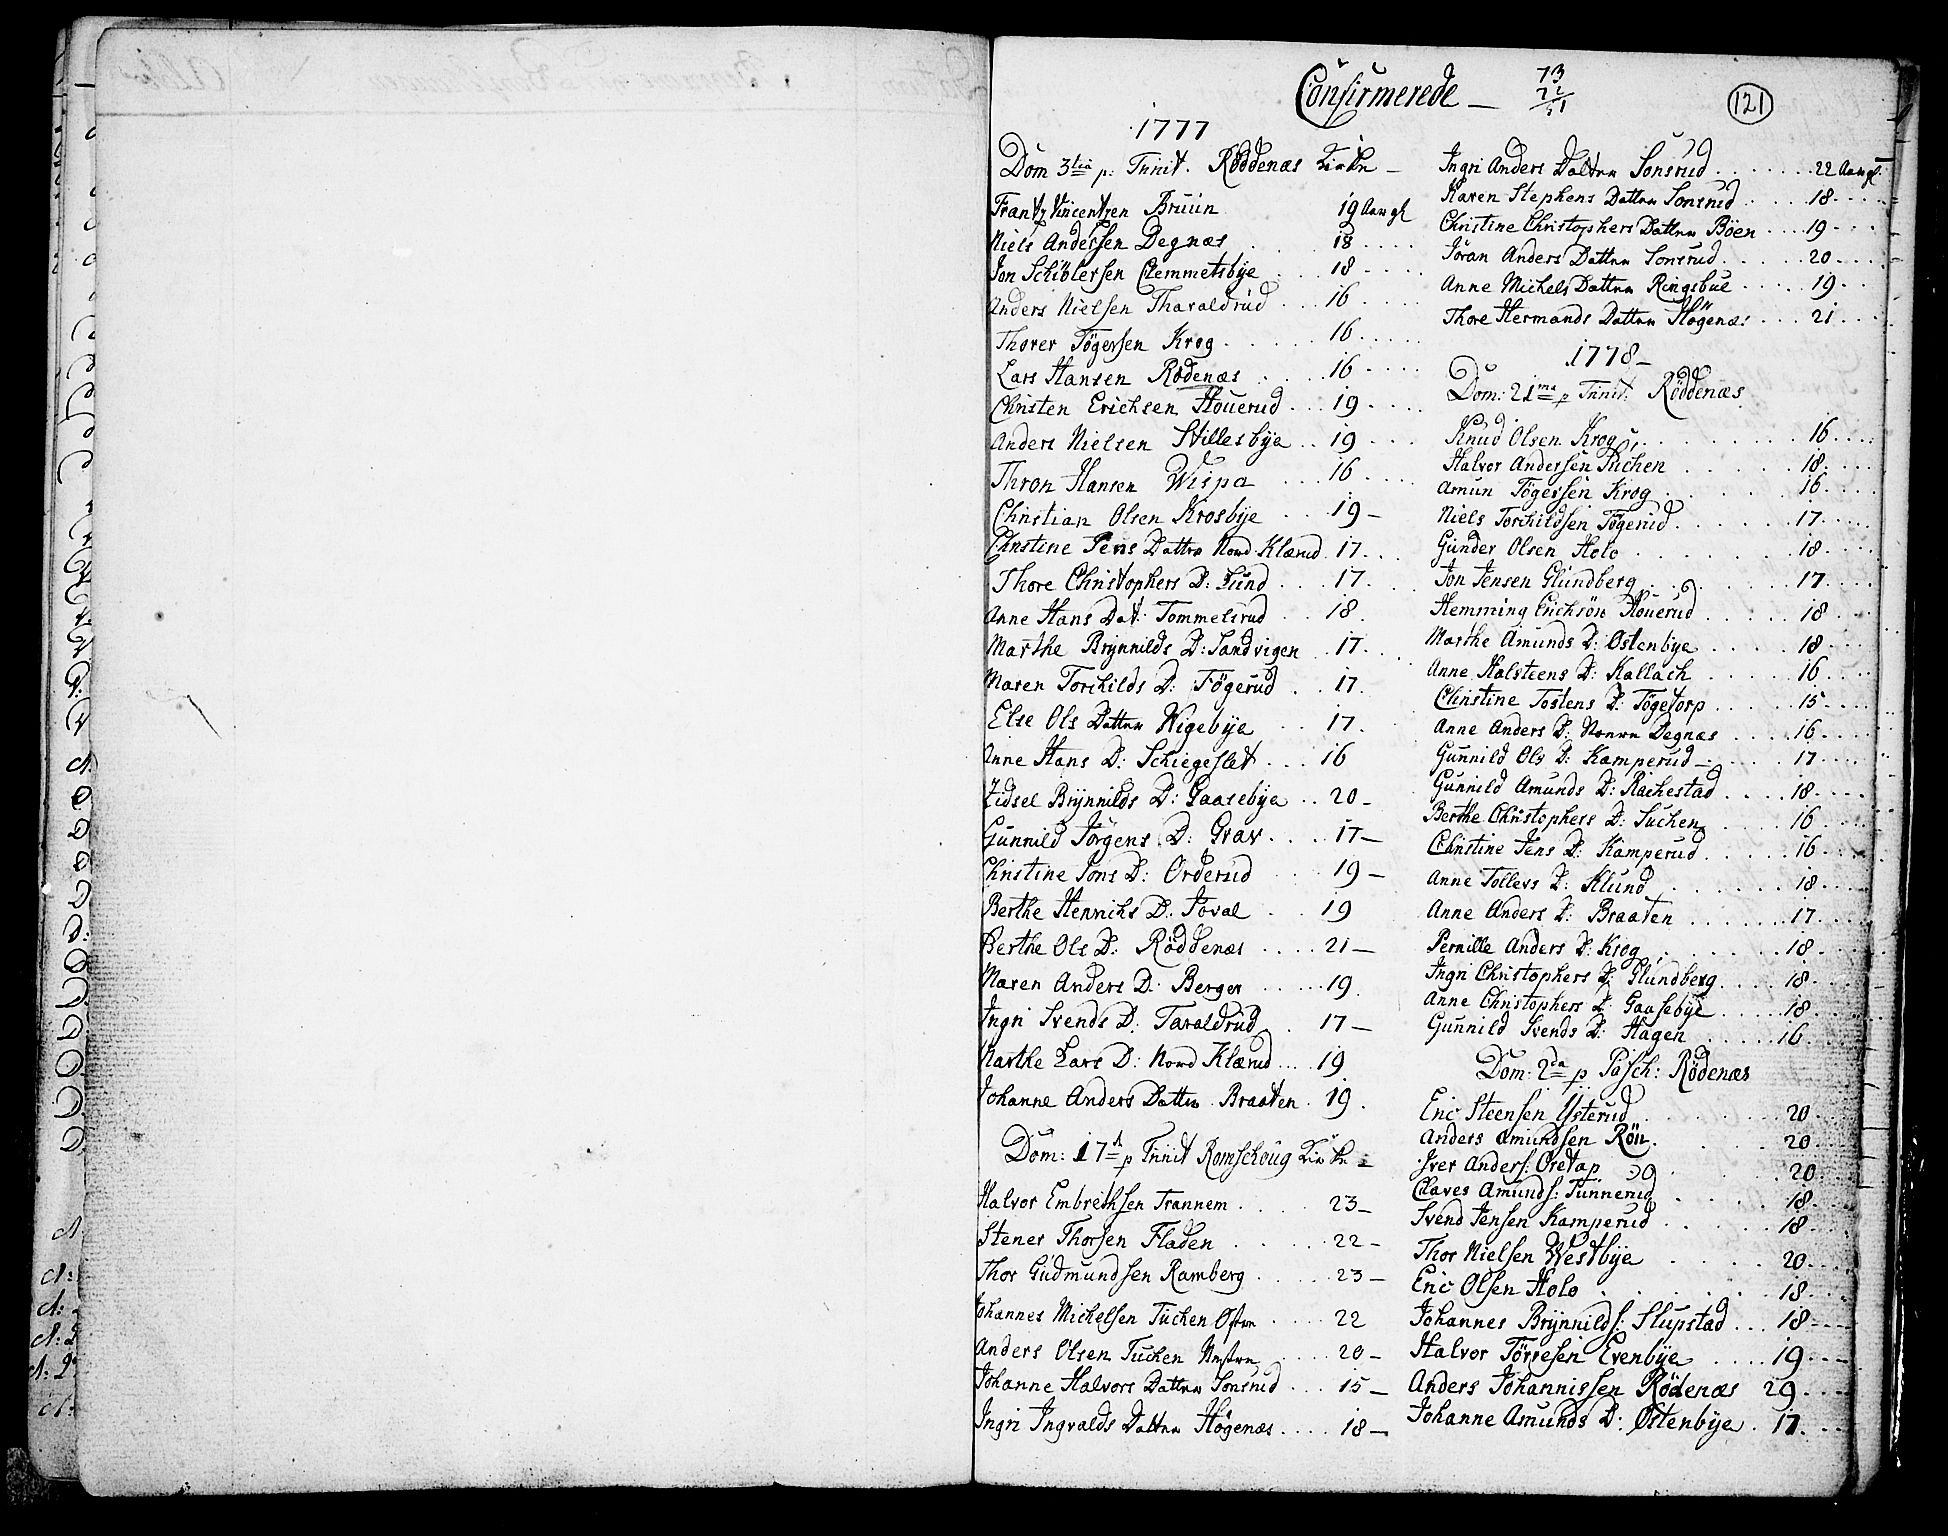 Confirmerede —
73
22
51
121
1777
Dom 3tia p: Trinit. Röddenæs Kirke —
Frantz Vincentzen Bruun 19 Aar gl
Niels Andersen Degnæs 18
Jon Schiölersen Clemmetsbye 18
Anders Nielsen Tharaldrud 16
Thorer Tögersen Krog 16
Lars Hansen Rödenæs 16
Christen Erichsen Houerud 19
Anders Nielsen Stillesbye 19
Thron Hansen Wispa 16
Christian Olsen Krosbye 19 —
Christine Jens Dattr Nord Klærud 17
Thore Christophers D: Lund 17
Anne Hans Dat: Tommelsrud 18
Marthe Brynnilds D: Sandvigen 17
Maren Torchilds D: Fögerud 17
Else Ols Datter Wigebye 17
Anne Hans D: Schiegeslet 16
Zidsel Brynnilds D: Gaasebye 20 —
Gunnild Jörgens D: Grav 17 —
Christine Jons D: Orderud 19 —
Berthe Henrichs D: Joval 19
Berthe Ols D: Röddenæs 21 —
Maren Anders D: Berger 19
Ingri Svends D: Taraldrud 17 —
Marthe Lars D: Nord Klærud 19
Johanne Anders Datter Braaten 19
Dom: 17 p Trinit Romschoug Kirke
Halvor Embrethsen Trannem 23 —
Stener Thorsen Fladen 22 —
Thor Gudmundsen Ramberg 23 —
Johannes Michelsen Tuchen Östre 22
Anders Olsen Tuchen Vestre 20 —
Johanne Halvors Datter Sonsrud 15 —
Ingri Ingvalds Datter Högenæs 18 —
Ingri Anders Datter Sonsrud 22 Aar gl
Karen Stephens Datter Sonsrud 18
Christine Christophers Datter Böen 19
Jöran Anders Datter Sonsrud 20
Anne Michels Datter Ringsbue 19
Thore Hermands Datter Högenæs 21
1778 —
Dom: 21ma p Trinit: Röddenæs
Knud Olsen Krog 16
Halvor Andersen Tuchen 18
Amun Tögersen Krog 16
Niels Torchildsen Fögerud 17
Gunder Olsen Holo 18
Jon Jensen Glundberg 17
Hemming Erichsön Houerud 18
Marthe Amunds D: Ostenbye 18
Anne Halsteens D: Kallach 16
Christine Tostens D: Tögetorp 15
Anne Anders D: Degnæs 16
Gunnild Ols D: Kamperud — 17
Gunnild Amunds D: Rachestad 18
Berthe Christophers D: Tuchen 16
Christine Jens D: Kamperud 16
Anne Tollevs D: Klund 18
Anne Anders D: Braaten 17
Pernille Anders D: Krog 18
Ingri Christophers D: Glundberg 18
Anne Christophers D: Gaasebye 18
Gunnild Svends D: Hagen 16
Dom: 2da p Pasch: Rödenæs
Eric Steensen Ysterud 20
Anders Amundsen Rön 20
Iver Anders: Oretap 20
Claves Amunds: Tunnerud 18
Svend Jensen Kamperud 18
Thor Nielsen Westbye 20
Eric Olsen Holo 18
Johannes Brynnilds: Slupstad 18
Halvor Törresen Evenbye 19
Anders Johannissen Rödenæs 29
Johanne Amunds D: Östenbye 17